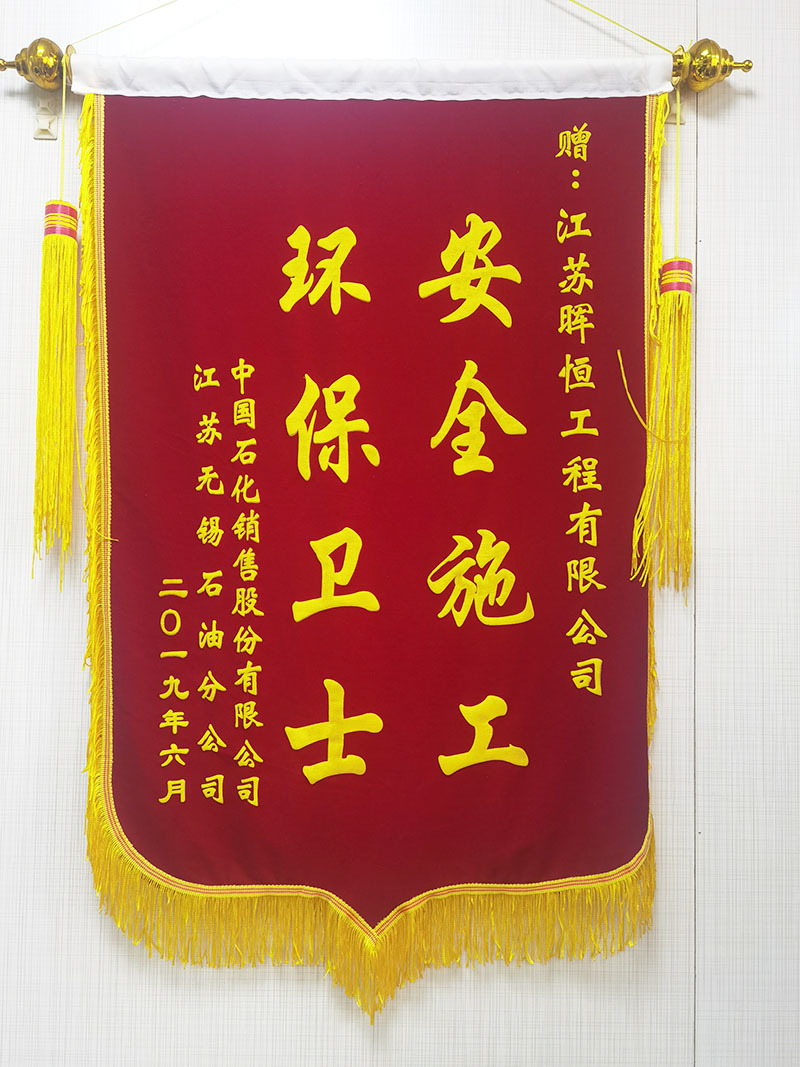 赠：江苏晖恒工程有限公司
安全施工
环保卫士
中国石化销售股份有限公司
江苏无锡石油分公司
二〇一九年六月